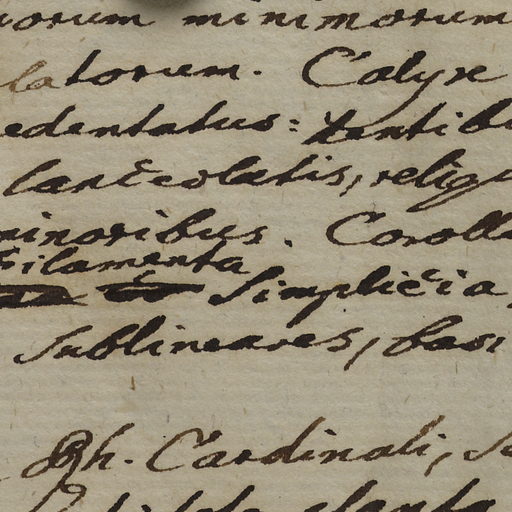 uorum minimorum
latorum. Calyx
edentatus: dentibu
lanceolatis, reliqu
minoribus. Corolla
Filamenta
Simplicia,
Sublineares, basi
Rh. Cardinali, S
tota planta